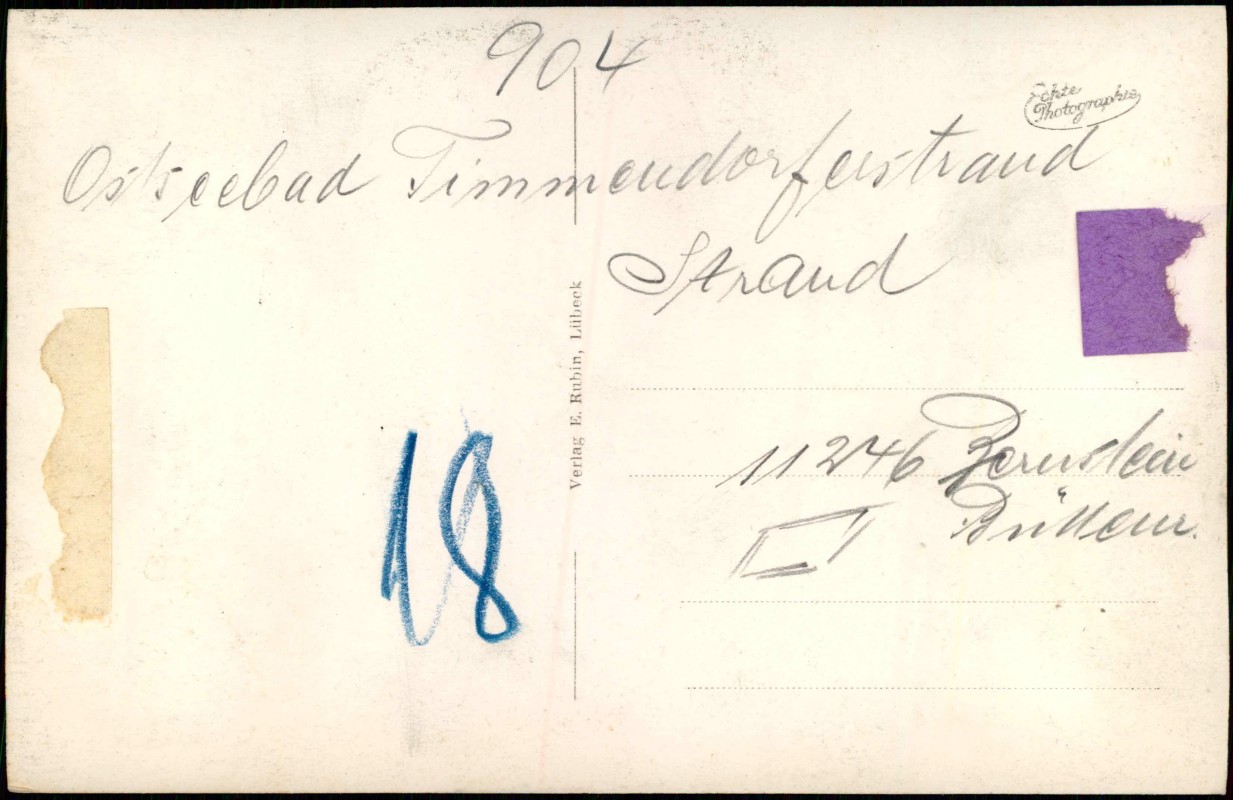 904
Echte
Photographie
Ostseebad Timmendorferstrand
Strand
Verlag E. Rubin, Lübeck
11246
18